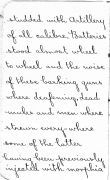 studded with Artillery
of all calibre. Batteries
stood almost wheel
to wheel and the noise
of these barking guns
where deafening, dead
mules and men where
strewn every-where
some of the latter
having been previously
injected with morphia